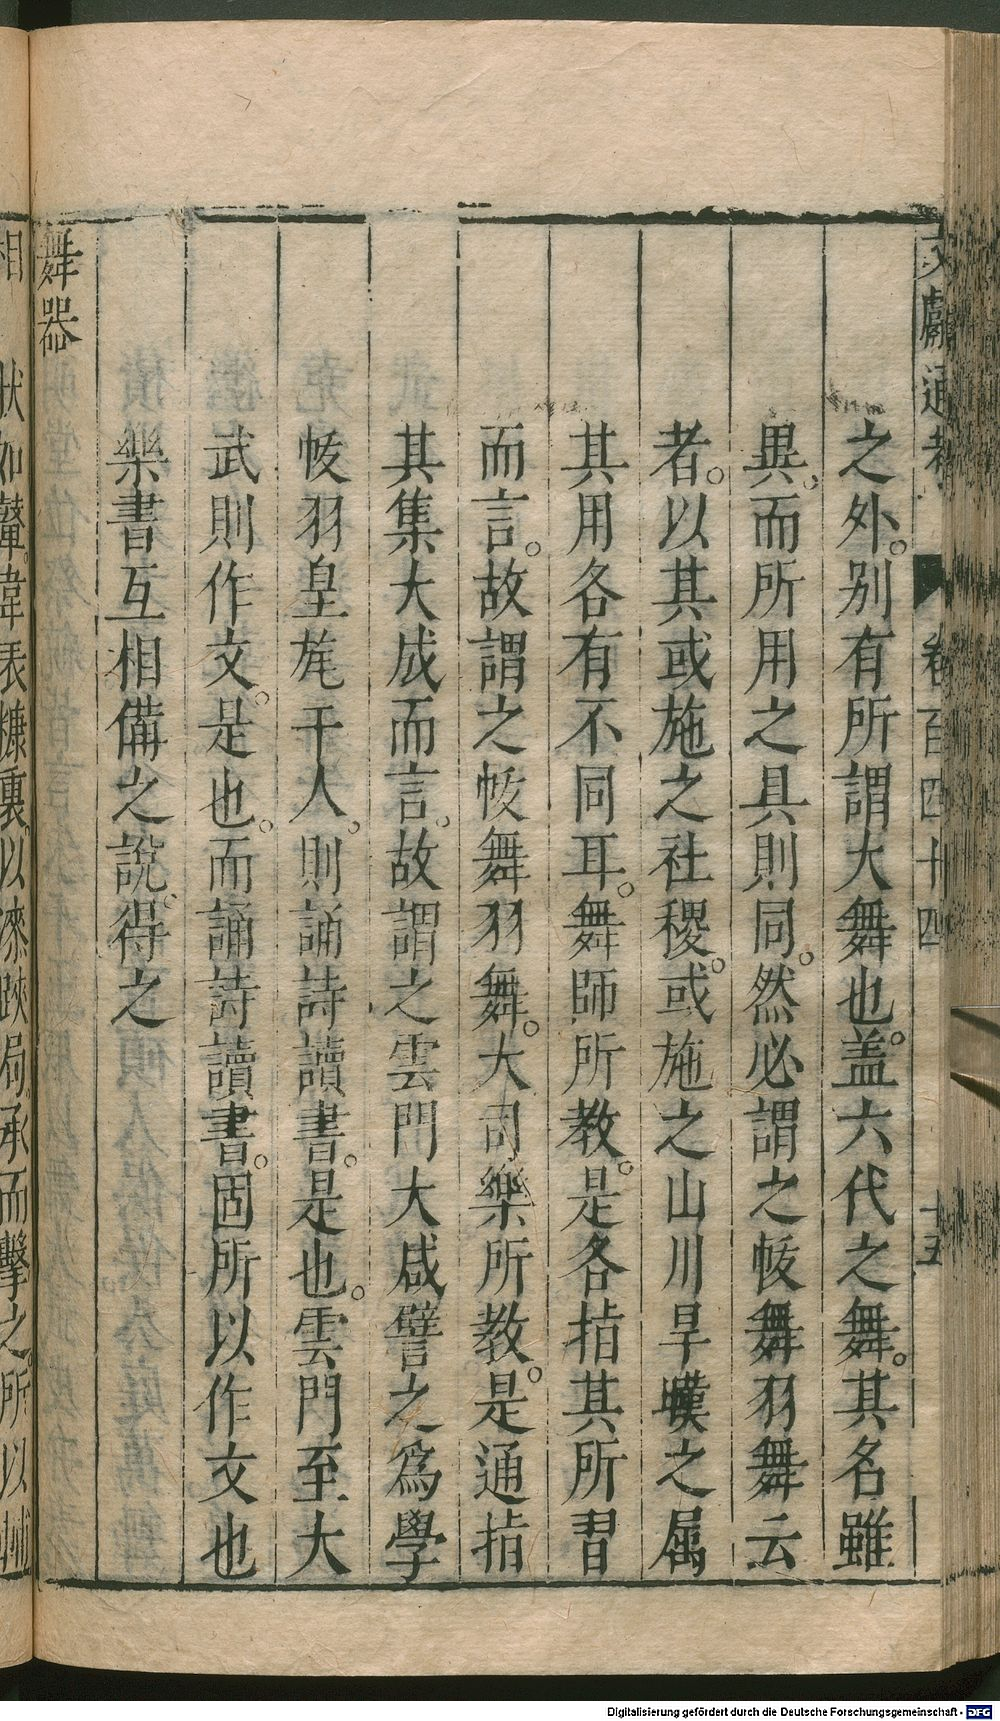 文獻通考 卷百四十四 十五
之外。別有所謂大舞也。盖六代之舞。其名雖
異。而所用之具則同。然必謂之帗舞羽舞云
者。以其或施之社稷。或施之山川旱暵之属
其用各有不同耳。舞師所教。是各指其所習
而言。故謂之帗舞羽舞。大司樂所教。是通指
其集大成而言。故謂之雲門大咸譬之爲學
帗羽皇旄干人。則誦詩讀書。是也。雲門至大
武則作文。是也。而誦詩讀書。固所以作文也
樂書互相備之說。得之
舞器
相 狀如鼙。韋表糠裏。以漆趺局。承而擊之。所以輔
Digitalisierung gefördert durch die Deutsche Forschungsgemeinschaft - DFG